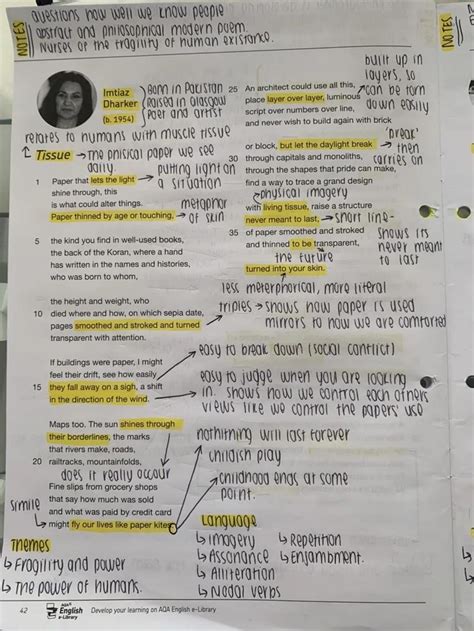 NOTES
questions how well we know people
abstract and philosophical modern poem.
Nurses of the fragility of human existance.
NOTES
Imtiaz
Dharker
(b. 1954)
Born in Pakistan
Raised in Glasgow
Poet and artist
relates to humans with muscle tissue
Tissue → The phicical paper we see daily.
putting light on a situation
1 Paper that lets the light
shine through, this
is what could alter things.
Paper thinned by age or touching,
metaphor of skin
5 the kind you find in well-used books,
the back of the Koran, where a hand
has written in the names and histories,
who was born to whom,
the height and weight, who
10 died where and how, on which sepia date,
pages smoothed and stroked and turned
transparent with attention.
If buildings were paper, I might
feel their drift, see how easily
15 they fall away on a sigh, a shift
in the direction of the wind.
Maps too. The sun shines through
their borderlines, the marks
that rivers make, roads,
20 railtracks, mountainfolds,
does it really occour
Fine slips from grocery shops
that say how much was sold
and what was paid by credit card
might fly our lives like paper kites.
simile
built up in layers, so can be torn down easily
25 An architect could use all this,
place layer over layer, luminous
script over numbers over line,
and never wish to build again with brick
or block, but let the daylight break
'break' then carries on
30 through capitals and monoliths,
through the shapes that pride can make,
find a way to trace a grand design
physical imagery
with living tissue, raise a structure
never meant to last,
→ short line - shows its never meant to last
35 of paper smoothed and stroked
and thinned to be transparent,
the future
turned into your skin.
less meterphorical, more literal
triples → shows how paper is used
mirrors to how we are comforted
easy to break down (social conflict)
easy to judge when you are looking
in. shows how we control each others
views like we control the papers' use
nothithing will last forever
childish play
childhood ends at some
point.
Themes
↳ Fragility and power
↳ The power of humans.
Language
↳ Imagery
↳ Assonance
↳ Alliteration
↳ Modal verbs
↳ Repetition
↳ Enjambment.
42 AQA English e-Library Develop your learning on AQA English e-Library